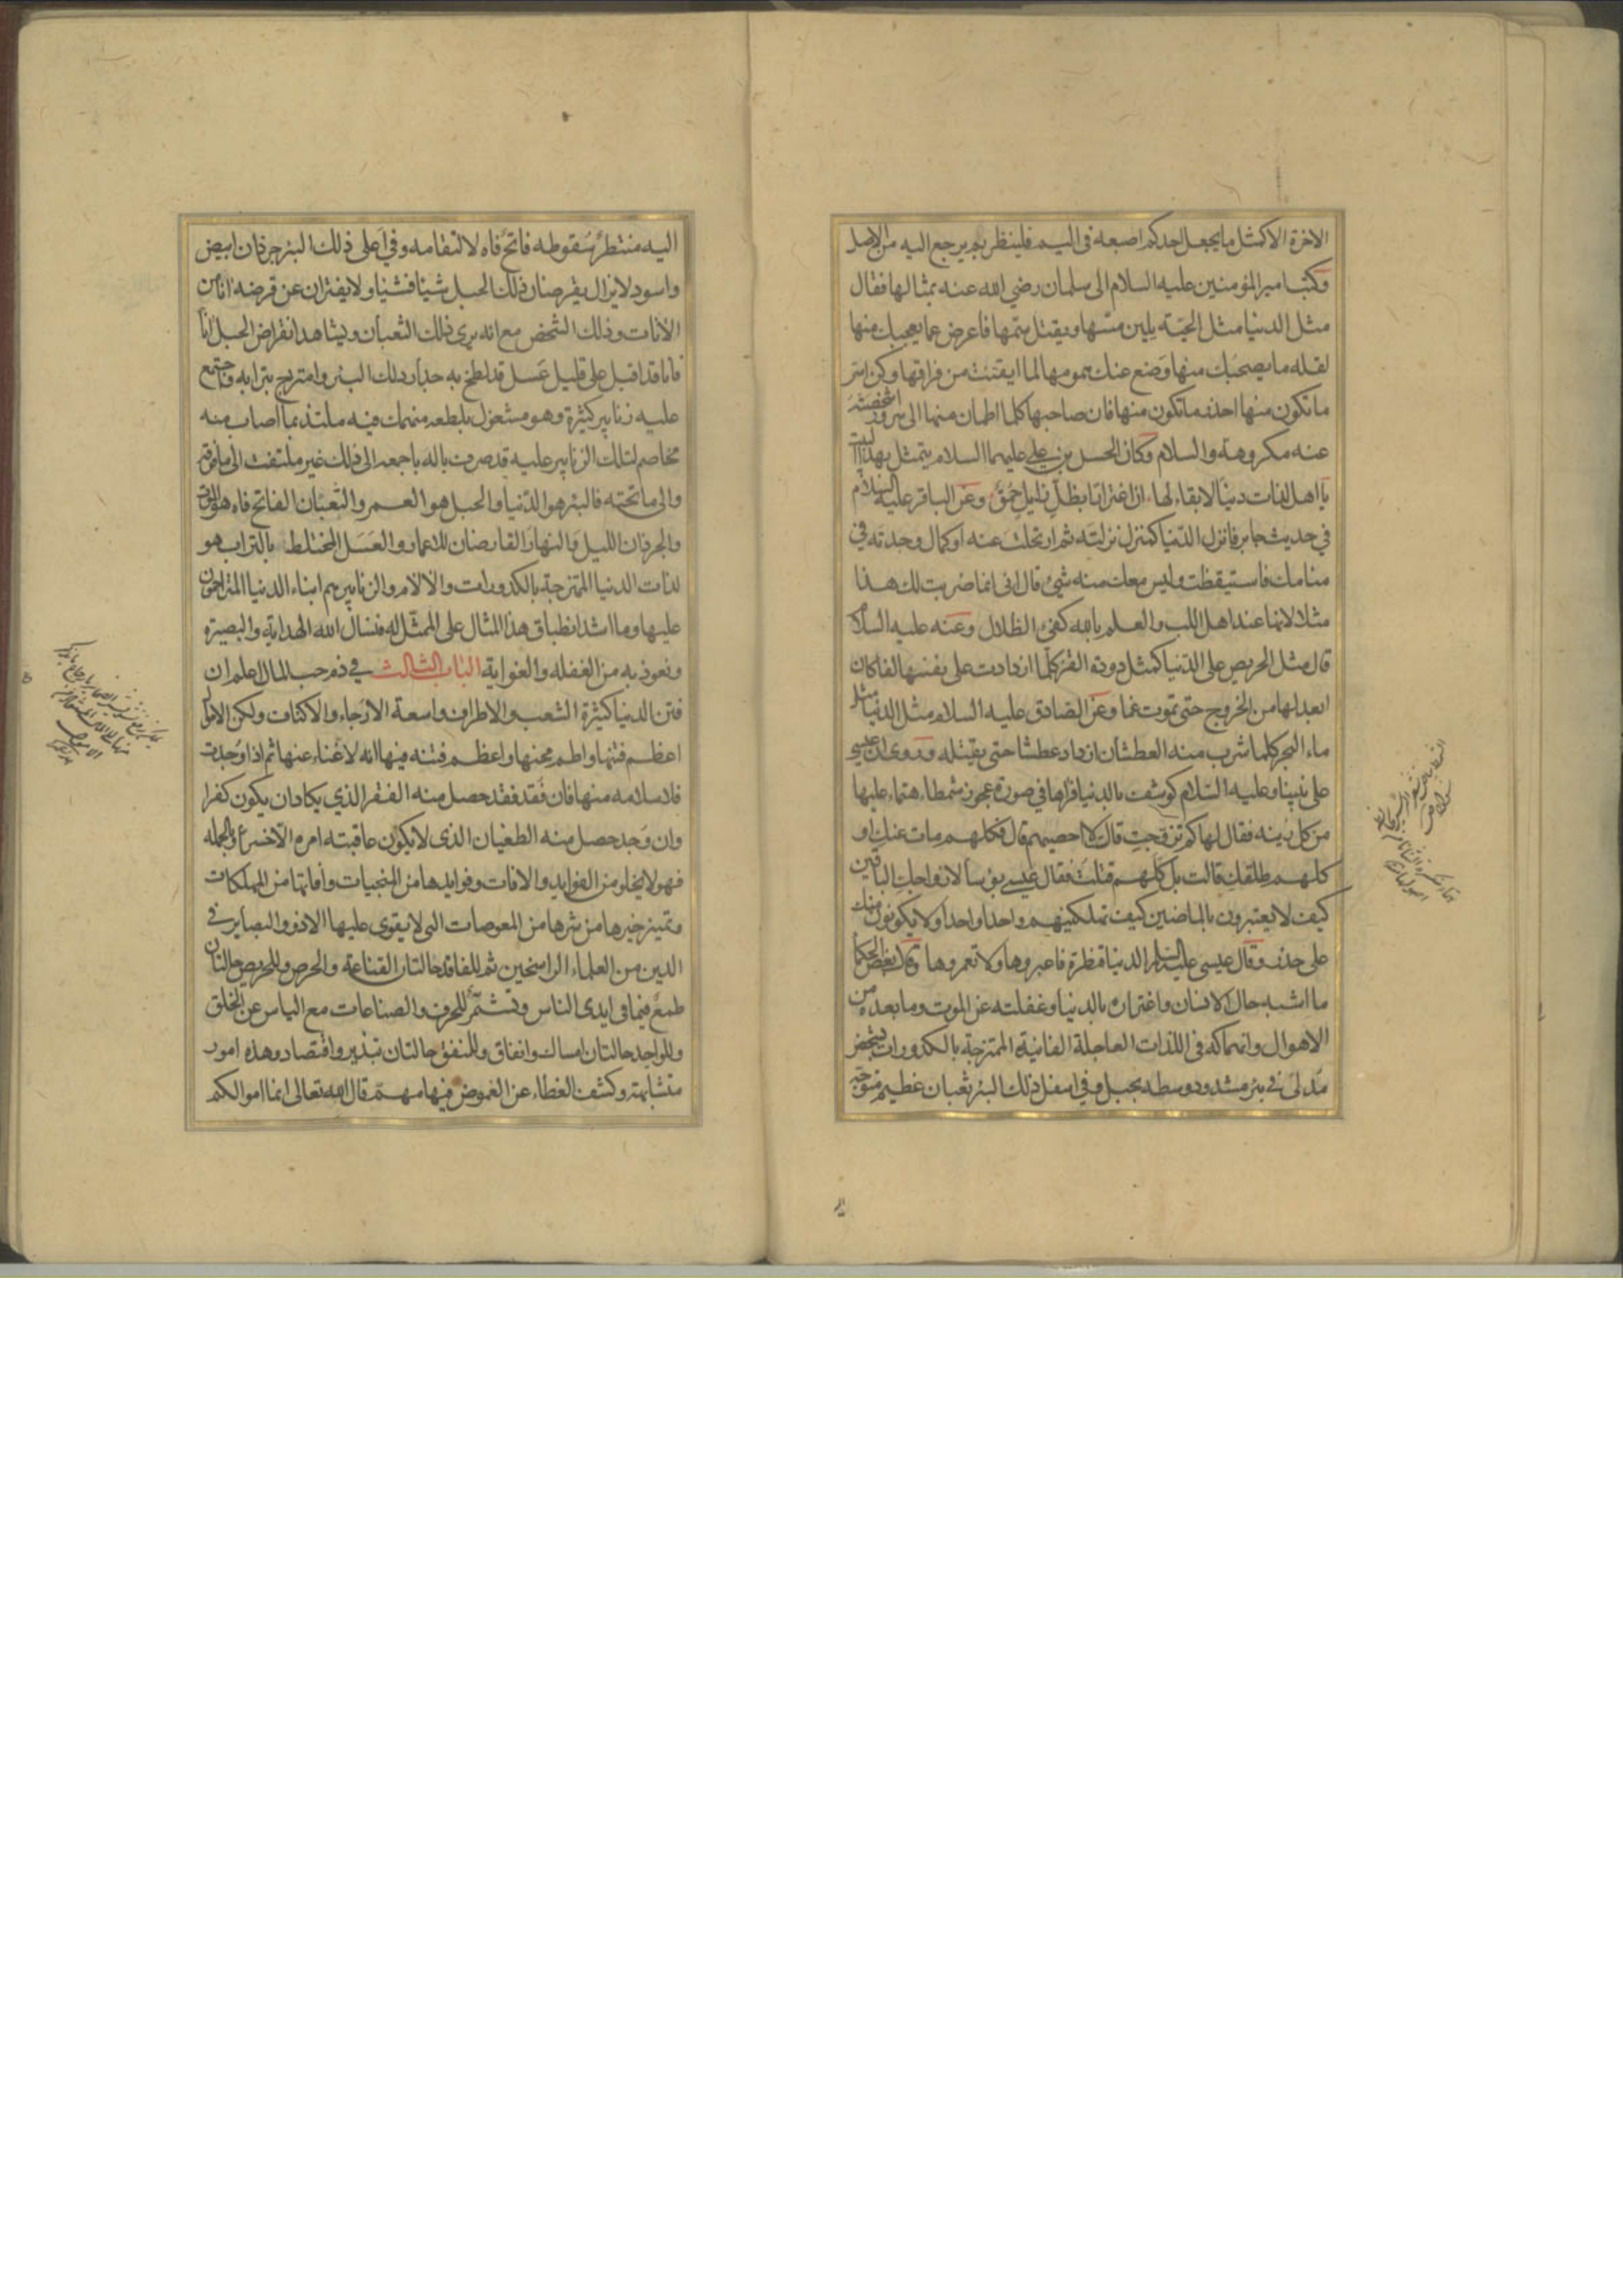 الاخرة الا كمثل ما يجعل احدكم اصبعه فى اليم فلينظر بم يرجع اليه من الاصل
وكتب امير المؤمنين عليه السلام الى سلمان رضي الله عنه بمثالها فقال
مثل الدنيا مثل الحية يلين مسها ويقتل سمها فاعرض عما يعجبك منها
لقلة ما يصحبك منها وضع عنك همومها لما ايقنت من فراقها وكن اسر
ما تكون منها احذر ما تكون منها فان صاحبها كلما اطمان منها الى سرور اشخصته
عنه مكروهة والسلام وكان الحسن بن علي عليهما السلام يتمثل بهذا البيت
يا اهل لذات دنيا لا بقاء لها، ان اغترارا بظل زايل حمق وعن الباقر عليه السلام
في حديث جابر فانزل الدنيا كمنزل نزلته ثم ارتحلت عنه او كمال وجدته في
منامك فاستيقظت وليس معك منه شئ قال انى انما ضربت لك هذا
مثلا لانها عند اهل اللب والعلم بالله كفئ الظلال وعنه عليه السلام
قال مثل الحريص على الدنيا كمثل دودة القز كلما ازدادت على نفسها لفا كان
ابعد لها من الخروج حتى تموت غما وعن الصادق عليه السلام مثل الدنيا مثل
ماء البحر كلما شرب منه العطشان ازداد عطشا حتى يقتله وروى ان عيسى
على نبينا وعليه السلام كوشف بالدنيا فراها في صورة عجوز شمطاء هتماء عليها
من كل زينه فقال لها كم تزوجت قالت لا احصيهم قال فكلهم مات عنك او
كلهم طلقك قالت بل كلهم قتلت فقال عيسى بؤسا لازواجك الباقين
كيف لا يعتبرون بالماضين كيف تهلكينهم واحدا واحدا ولا يكونون منك
على حذر وقال عيسى عليه السلام الدنيا قنطرة فاعبروها ولا تعمروها وقال بعض الحكما
ما اشبه حال الانسان واغتراره بالدنيا وغفلته عن الموت وما بعده من
الاهوال وانهماكه فى اللذات العاجلة الفانية الممتزجة بالكدورات بشخص
مدلى فى بئر مشدود وسطه بحبل وفي اسفل ذلك البئر ثعبان عظيم متوجه
اليه منتظر سقوطه فاتح فاه لالتقامه وفي اعلى ذلك البئر جرذان ابيض
واسود لا يزال يقرضان ذلك الحبل شيئا فشيئا ولا يفتران عن قرضه انا من
الآنات وذلك الشخص مع انه يرى ذلك الثعبان ويشاهد انقراض الحبل انا
فانا قد اقبل على قليل عسل قد لطخ به جدار ذلك البئر وامتزج بترابه واجتمع
عليه زنابير كثيرة وهو مشغول بلطعه منهمك فيه ملتذ بما اصاب منه
مخاصم لتلك الزنابير عليه قد صرف باله باجمعه الى ذلك غير ملتفت الى ما فوقه
والى ما تحته فالبئر هو الدنيا والحبل هو العمر والثعبان الفاتح فاه هو الموت
والجرذان الليل والنهار القارضان للاعمار والعسل المختلط بالتراب هو
لذات الدنيا الممتزجة بالكدورات والالام والزنابير هم ابناء الدنيا المتزاحمون
عليها وما اشد انطباق هذا المثال على الممثل له فنسال الله الهداية والبصيرة
ونعوذ به من الغفله والغواية الباب الثالث في ذم حب المال اعلم ان
فتن الدنيا كثيرة الشعب والاطراف واسعة الارجاء والاكناف ولكن الاموال
اعظم فتنها واطم محنها واعظم فتنه فيها انه لا غناء عنها ثم اذا وجدت
فلا سلامه منها فان فقد فقد حصل منه الفقر الذي يكاد ان يكون كفرا
وان وجد حصل منه الطغيان الذى لا يكون عاقبته امره الا خسرا وبالجمله
فهو لا يخلو من الفوايد والافات وفوايدها من المنجيات وافاتها من المهلكات
وتميز خيرها من شرها من المعوصات التي لا يقوى عليها الا ذوو البصاير فى
الدين من العلماء الراسخين ثم للفاقد حالتان القناعة والحرص وللحريص حالتان
طمع فيما فى ايدى الناس وتشمر للحرف والصناعات مع الياس عن الخلق
وللواجد حالتان امساك وانفاق وللمنفق حالتان تبذير واقتصاد وهذه امور
متشابهة وكشف الغطاء عن الغموض فيها مهم قال الله تعالى انما اموالكم